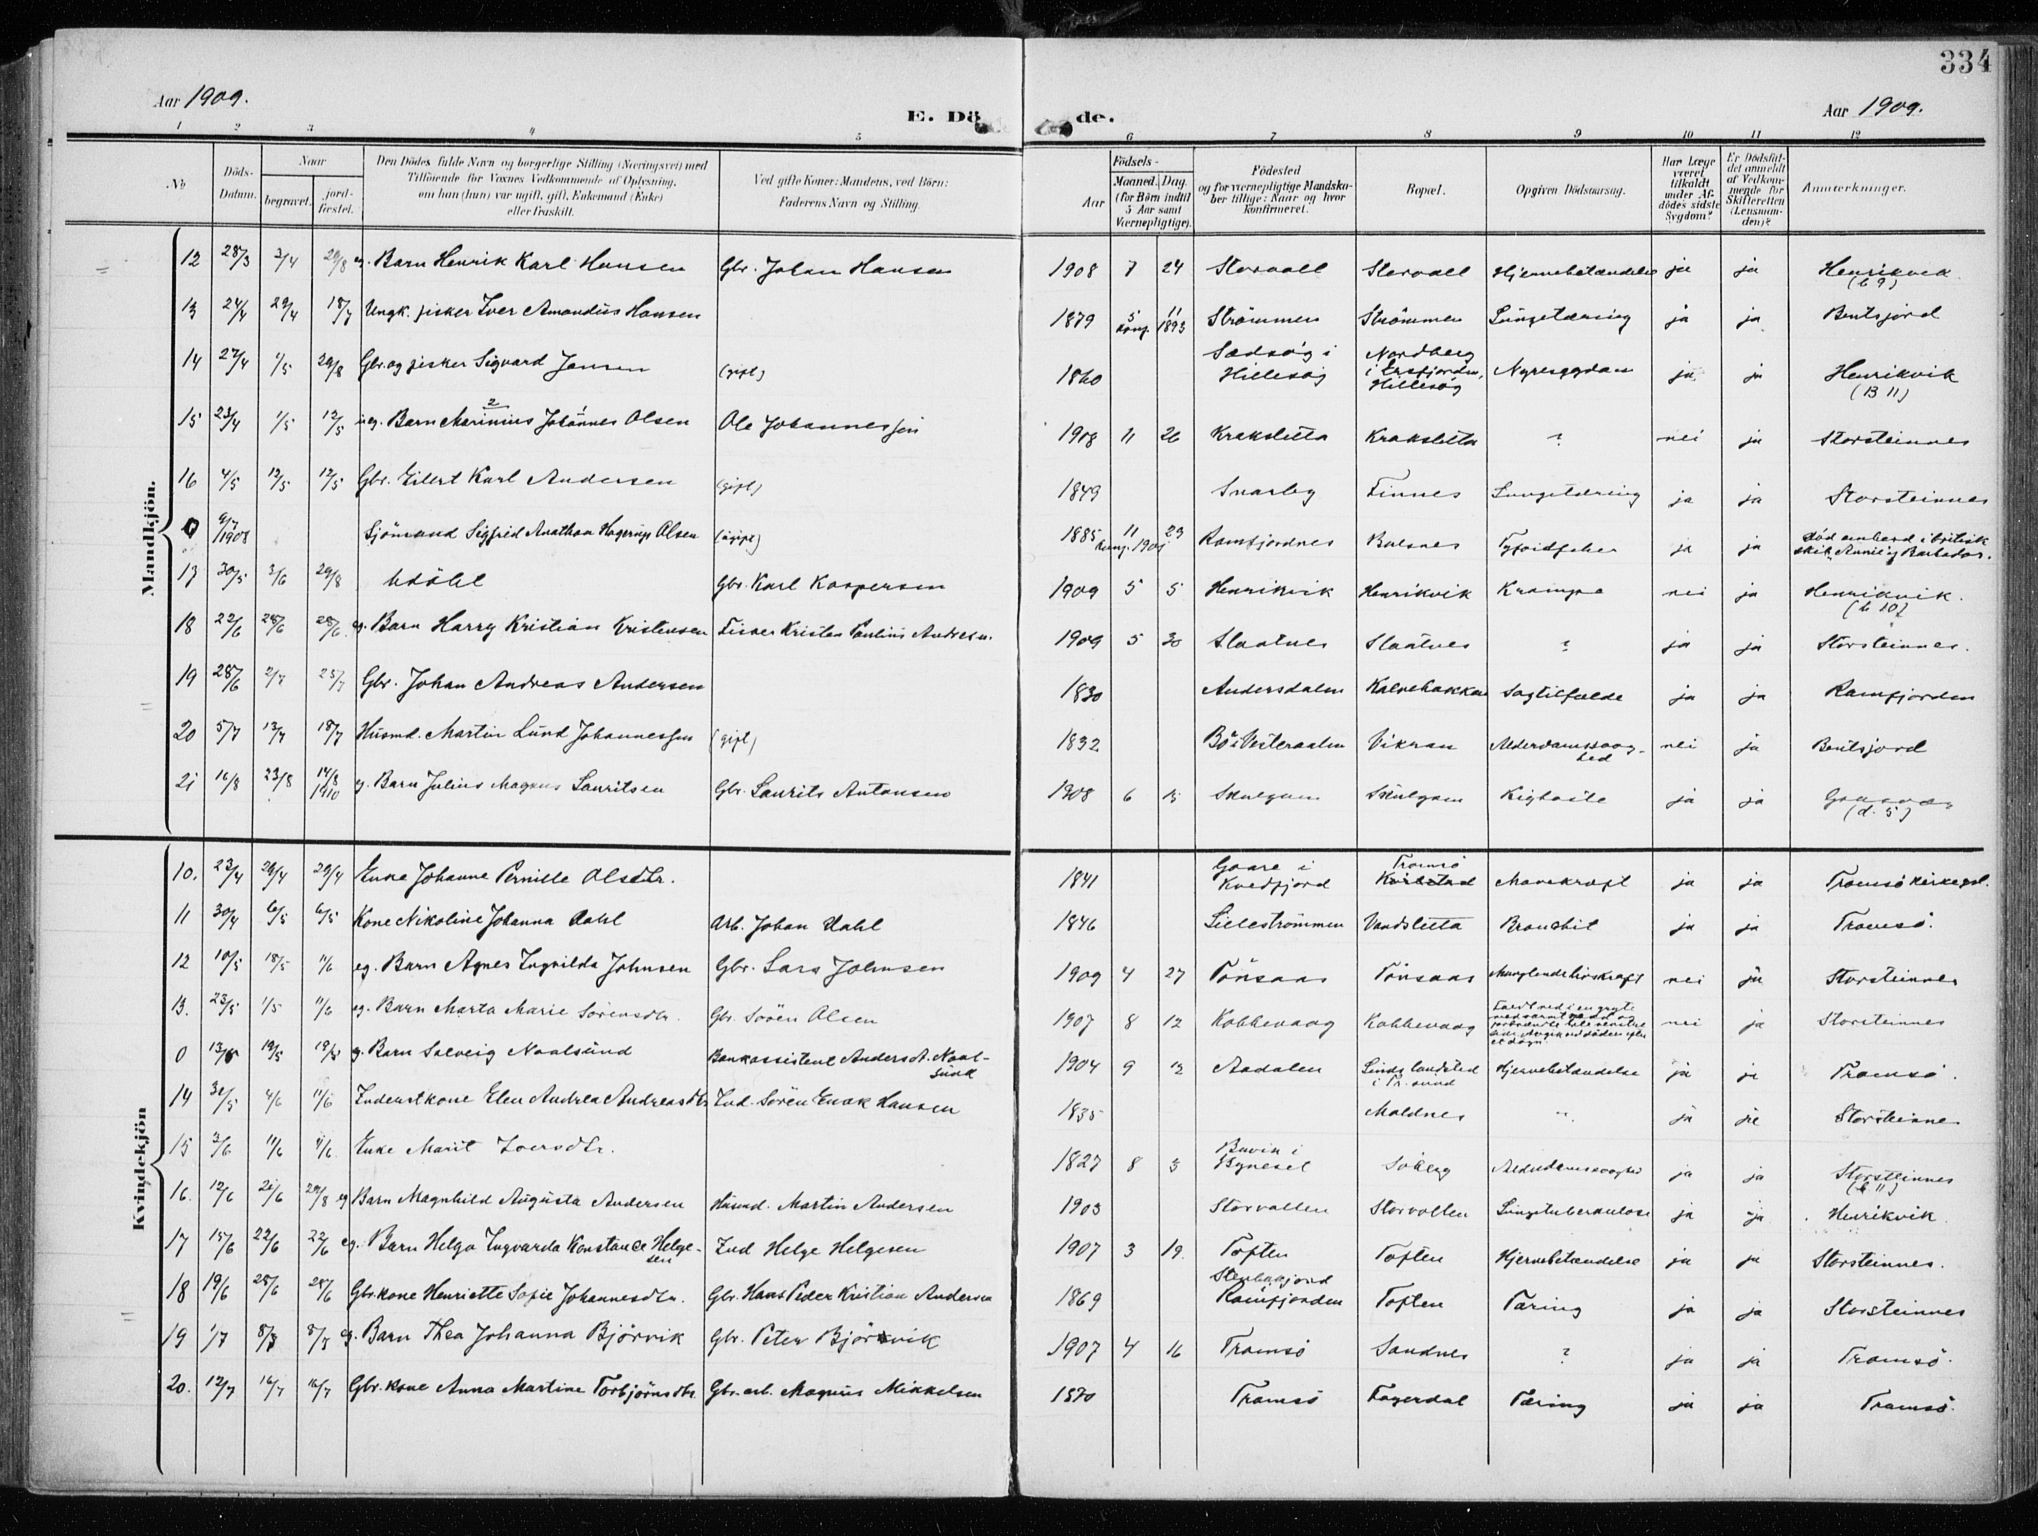 334
Aar 1909.
E. Dö de.
Aar 1909.
1 2 3 4 5 6 7 8 9 10 11 12
No
Döds-Datum.
Naar
begravet.
jord-fæstet.
Den Dödes fulde Navn og borgerlige Stilling (Næringsvei) med
Tilföiende for Voxnes Vedkommende af Oplysning,
om han (hun) var ugift, gift, Enkemand (Enke)
eller fraskilt.
Ved gifte Koner: Mandens, ved Börn:
Faderens Navn og Stilling.
Födsels-
Aar
Maaned. Dag.
(for Börn indtil
5 Aar samt
Værnepligtige).
Födested
og for værnepligtige Mandska-
ber tillige: Naar og hvor
konfirmeret.
Bopæl.
Opgiven Dödsaarsag.
Har Læge
været
tilkaldt
under Af-
dödes sidste
Sygdom?
Er Dödsfal-
det anmeldt
af Vedkom-
mende for
Skifteretten
(Lensman-
den)?
Anmærkninger.
Mandkjön.
12 28/3 2/4 29/8 eg. Barn Henrik Karl Hansen Gbr. Johan Hansen 1908 7 24 Storvoll Storvoll Hjernebetændelse ja ja Henrikvik (b 9)
13 24/4 29/4 18/7 Ungk. fisker Iver Amandus Hansen 1879 5 11 konf. 1893 Strömmen Strömmen Lungetæring ja ja Bentsjord
14 27/4 1/5 29/8 Gbr. og fisker Sigvard Jensen (gift) 1860 i Hillesög Nordberg i Ersfjorden, Hillesög Nyresygdom ja ja Henrikvik (B 11)
15 23/4 1/5 12/5 ueg. Barn Marinius 2 Johannes 1 Olsen Ole Johannessen 1908 11 26 Krakslett​a Krakslett​a ? nei ja Storsteinnes
16 4/5 12/5 12/5 Gbr. Eilert Karl Andersen (gift) 1849 Snarby Finnes Lungetæring ja ja Storsteinnes
0 9/7 1908 Sjömand Sigfred Anathon Hagerup Olsen (ugift) 1885 11 23 Ramfjordnes Balsnes Tyfoidfeber ja ja död ombord i britisk skib
17 30/5 3/6 29/8 Udöbt Gbr. Karl Kaspersen 1909 5 5 Henrikvik Henrikvik Krampe nei ja Henrikvik. (b 10)
18 22/6 28/6 28/6 eg. Barn Harry Kristian Kristensen Fisker Kristen Paulius Andresen. 1909 5 30 Slaatnes Slaatnes ? ja ja Storsteinnes.
19 28/6 2/7 25/7 Gbr. Johan Andreas Andersen 1830 Andersdalen Kalvebakken Slagtilfælde ja ja Ramfjorden
20 5/7 13/7 18/7 Husmd. Martin Lund Johannessen (gift) 1832 Bö i Vesteraalen Vikran Alderdomssvag-hed nei ja Bentsjord
21 16/8 23/8 14/8 1910 eg. Barn Julius Magnus Lauritsen Gbr. Laurits Antonsen 1908 6 15 Skulgam Skulgam Kighoste ja ja (d. 5)
Kvindekjön
10. 23/4 29/4 29/4 Enke Johanne Pernille Olsdtr. 1841 Gaare i Kvedfjord Tromsö Marekræft ja ja Tromsö kirkegd.
11 30/4 6/5 6/5 Kone Nikoline Johanna Dahl Arb. Johan Dahl 1846 Lillestrommen Vandsletta Bronchit ja ja Tromsö.
12 10/5 18/5 11/6 eg. Barn Agnes Ingvilda Johnsen Gbr. Lars Johnsen 1909 4 27 Tönsaas Tönsaas Manglende livskraft nei ja Storsteinnes
13. 23/5 1/5 11/6 eg. Barn Marta Marie Sörensdtr. Gbr. Sören Olsen 1907 8 12 Kobbevaag Kobbevaag nei ja Storsteinnes
0 13/5 19/5 19/5 eg. Barn Solveig Naalsund Bankassistent Anders A. Naal-sund 1904 9 12 Aadalen Hjernebetændelse ja ja Tromsö.
14 31/5 4/6 11/6 Inderstkone Elen Andrea Andreasdtr Ind. Sören Enok Hansen 1835 Maldnes ja ja Storsteinnes
15 3/6 11/6 11/6 Enke Marit Iversdtr. 1827 8 3 Buvik i Bynesel Söberg Alderdomssvaghed ja ja Storsteinnes (b 11)
16. 12/6 21/6 29/8 eg Barn Magnhild Augusta Andersen Husmd. Martin Andersen 1903 Storvollen Storvollen Lungetuberkulose ja ja Henrikvik.
17 15/6 22/6 22/6 eg. Barn Helga Ingvarda Konstance Helge-sen Ind Helge Helgesen 1907 3 19. Toften Toften Hjernebetændelse ja ja Storsteinnes.
18 19/6 28/6 28/6 Gbr. kone Henriette Sofie Johannesdtr. Gbr. Hans Peder Kristian Andersen 1869 Ramfjorden Toften Tæring ja ja Storsteinnes
19 1/7 8/7 8/7 eg. Barn Thea Johanna Björvik Gbr. Peter Björvik 1907 4 16 Tromsö Sandnes ? ja ja Tromsö.
20. 12/7 16/7 16/7 Gbr. kone Anna Martine Torbjörnsdtr. Gbr. arb. Magnus Mikkelsen 1870 Tromsö Fagerdal Tæring ja ja Tromsö.